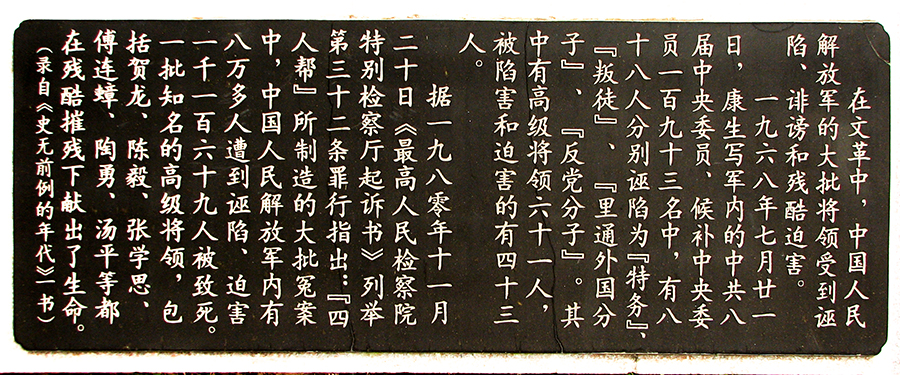 在文革中，中国人民
解放军的大批将领受到诬
陷、诽谤和残酷迫害。
一九六八年七月廿一
日，康生写军内的中共八
届中央委员、候补中央委
员一百九十三名中，有八
十八人分别诬陷为『特务』、
『叛徒』、『里通外国分
子』、『反党分子』。其
中有高级将领六十一人，
被陷害和迫害的有四十三
人。
据一九八零年十一月
二十日《最高人民检察院
特别检察厅起诉书》列举
第三十二条罪行指出：『四
人帮』所制造的大批冤案
中，中国人民解放军内有
八万多人遭到诬陷、迫害
一千一百六十九人被致死。
一批知名的高级将领，包
括贺龙、陈毅、张学思、
傅连蟑、陶勇、汤平等都
在残酷摧残下献出了生命。
（录自《史无前例的年代》一书）